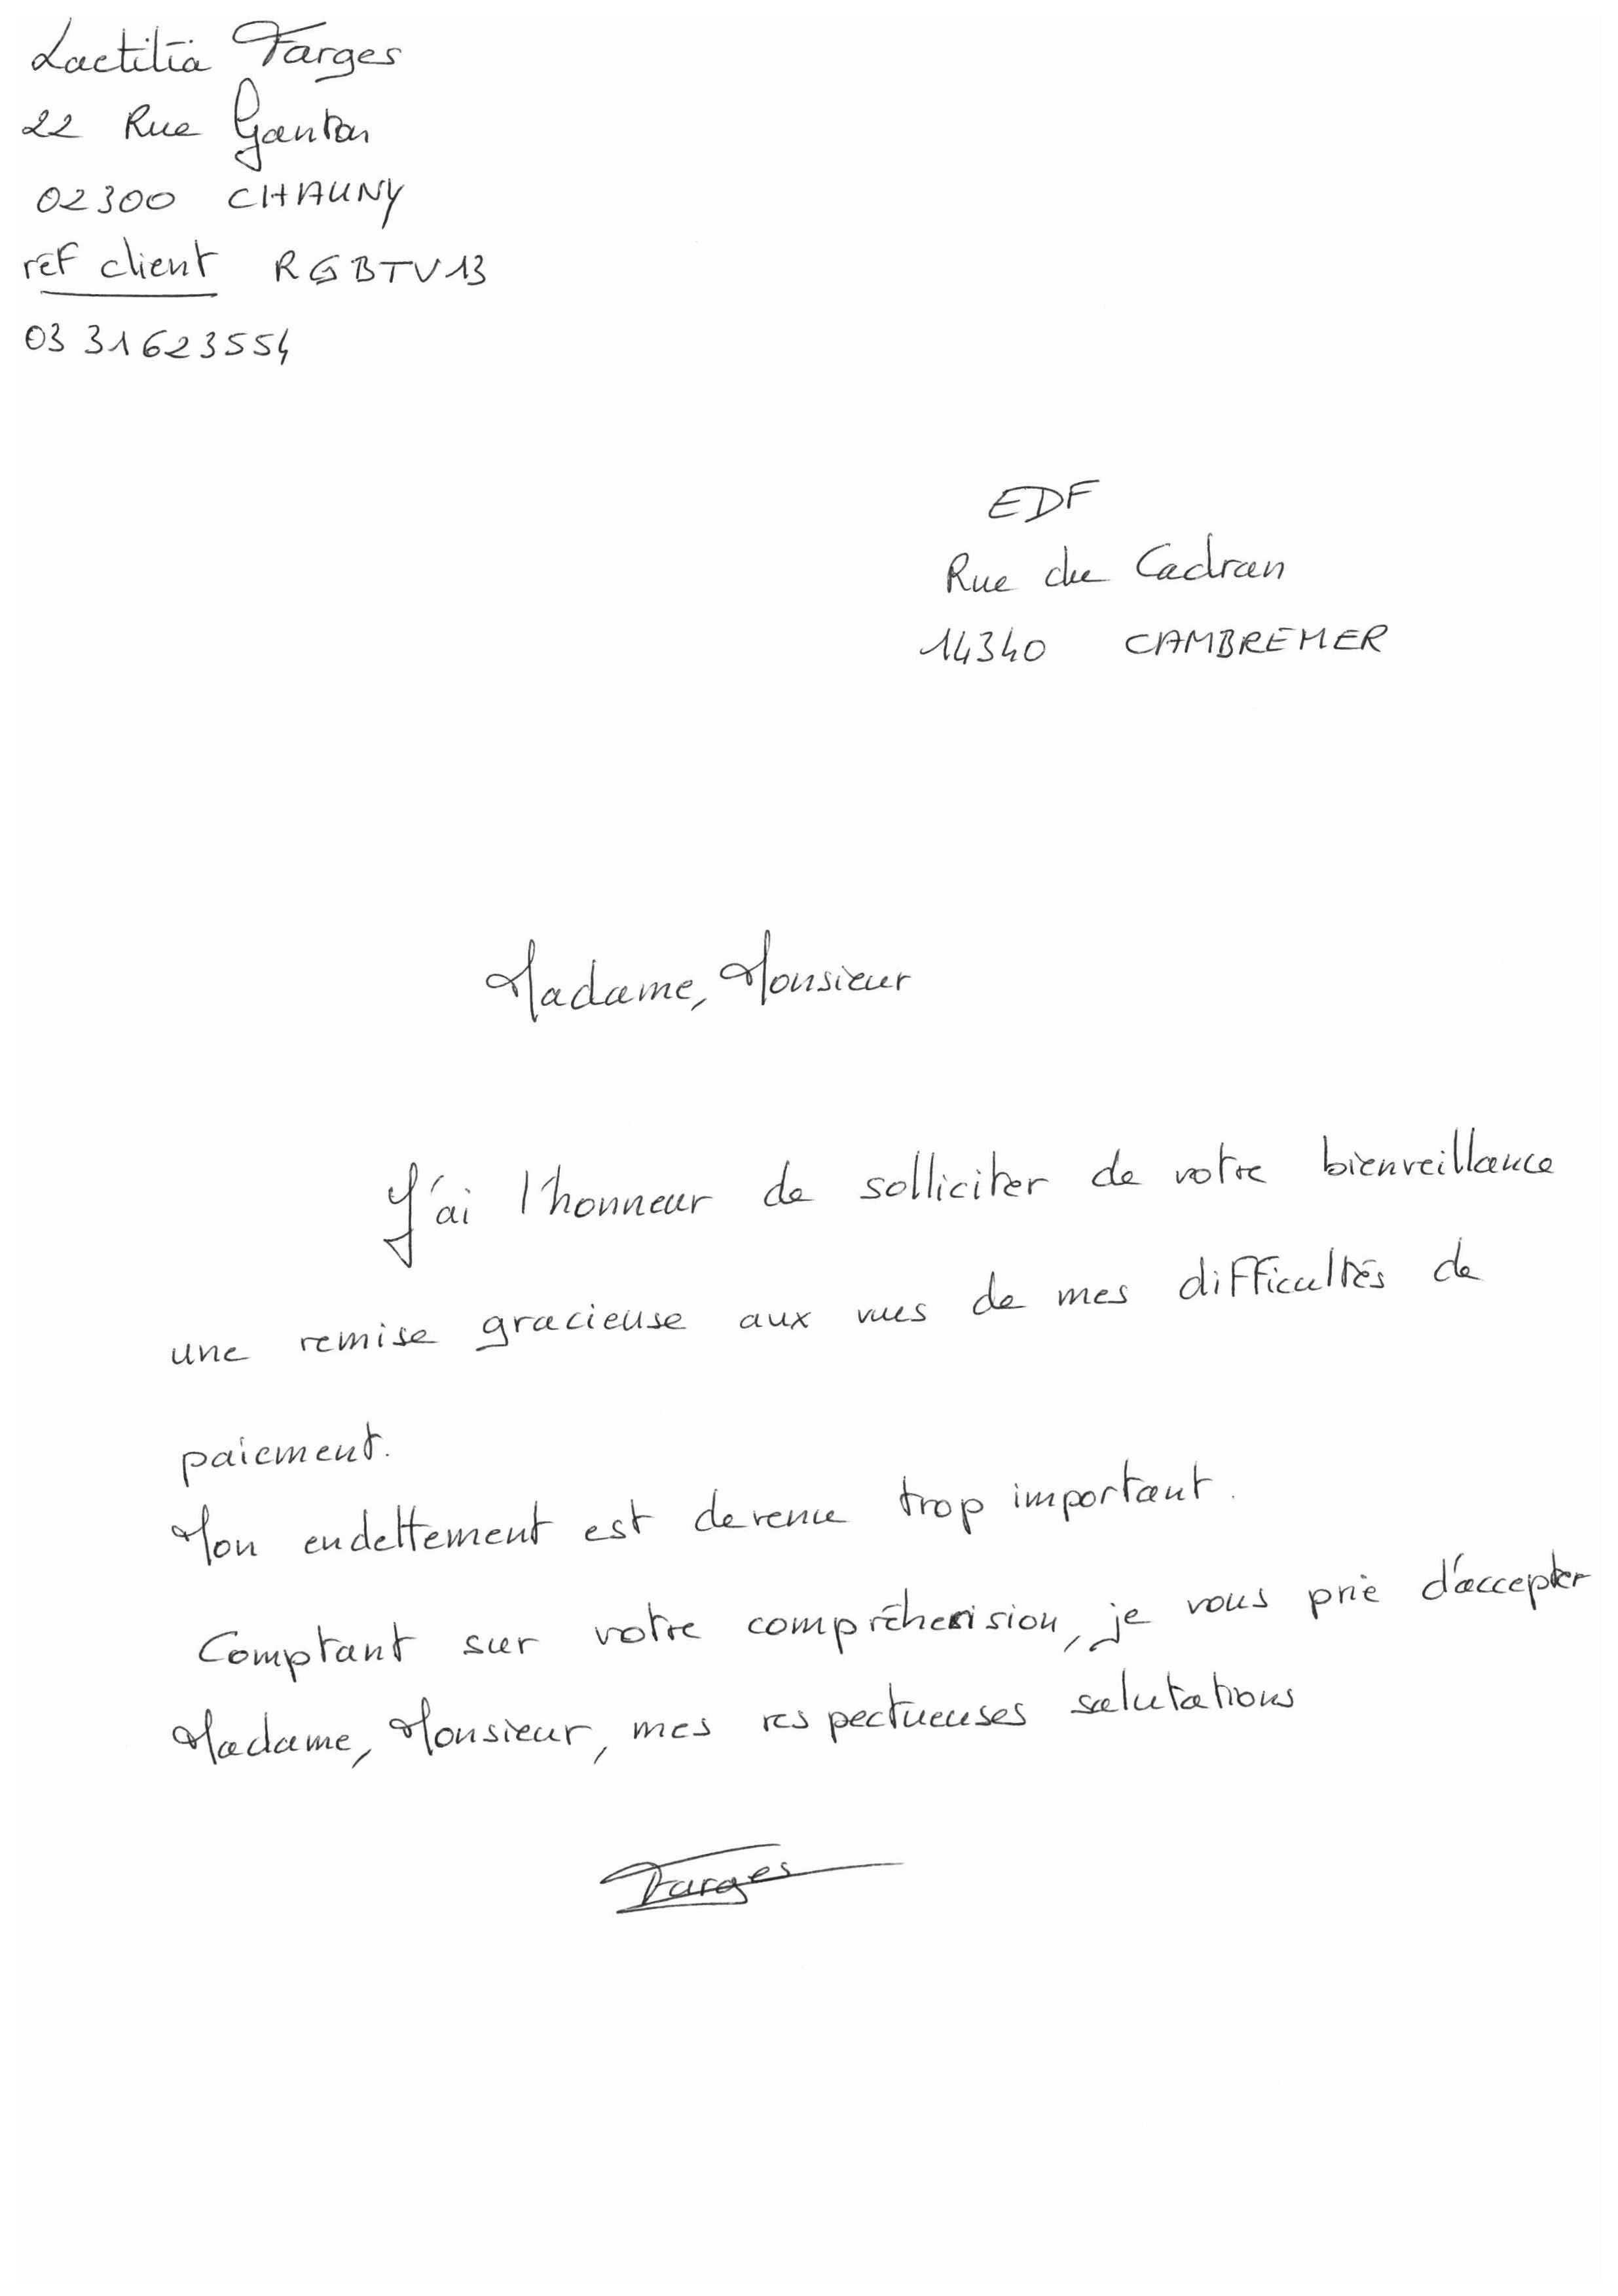 Laetitia Farges
22 Rue Ganton
02300 CHAUNY
réf client RGBTV13
03 31623554
EDF
Rue du Cadran
14340 CAMBREMER
Madame, Monsieur
J'ai l'honneur de solliciter de votre bienveillance
une remise gracieuse aux vues de mes difficultés de
paiement.
Mon endettement est devenu trop important.
Comptant sur votre compréhension, je vous prie d'accepter
Madame, Monsieur, mes respectueuses salutations
Farges